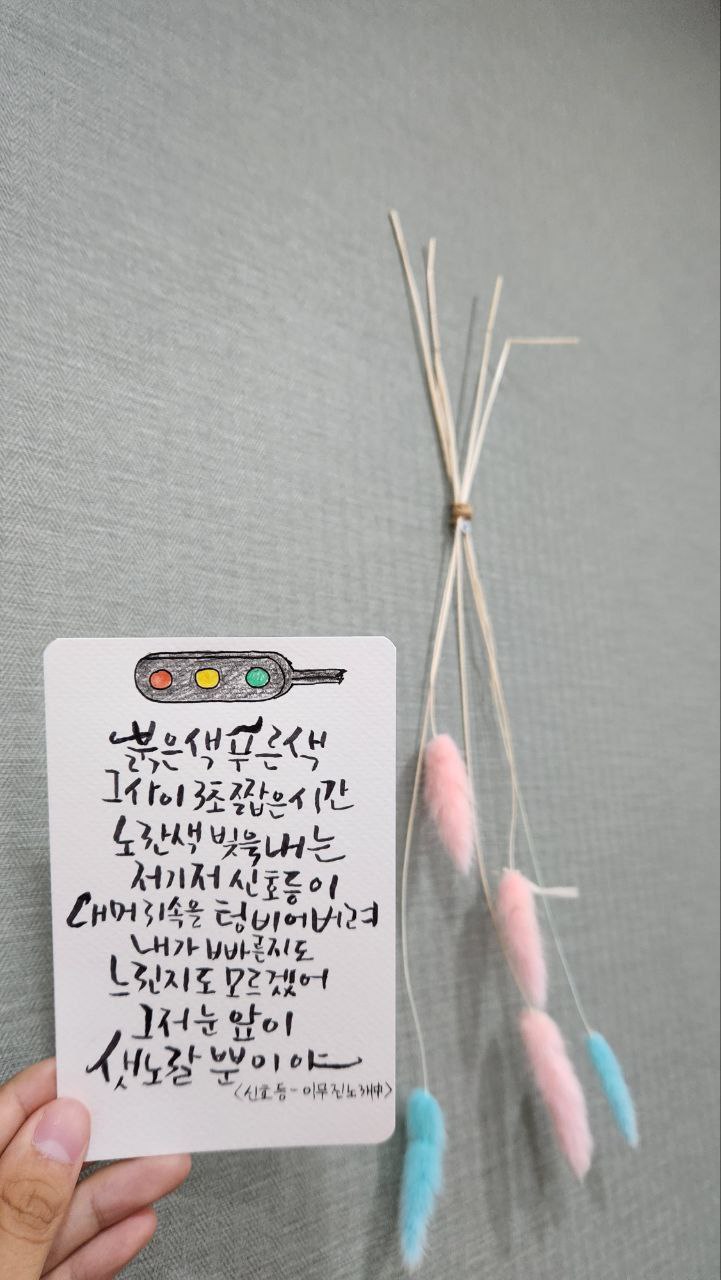 붉은색 푸른색
그사이 3초 짧은시간
노란색 빛을내는
저기저 신호등이
내머리속을 텅비어버려
내가 빠른지도
느린지도 모르겠어
그저 눈 앞이
샛노랄 뿐이야
<신호등-이무진노래中>